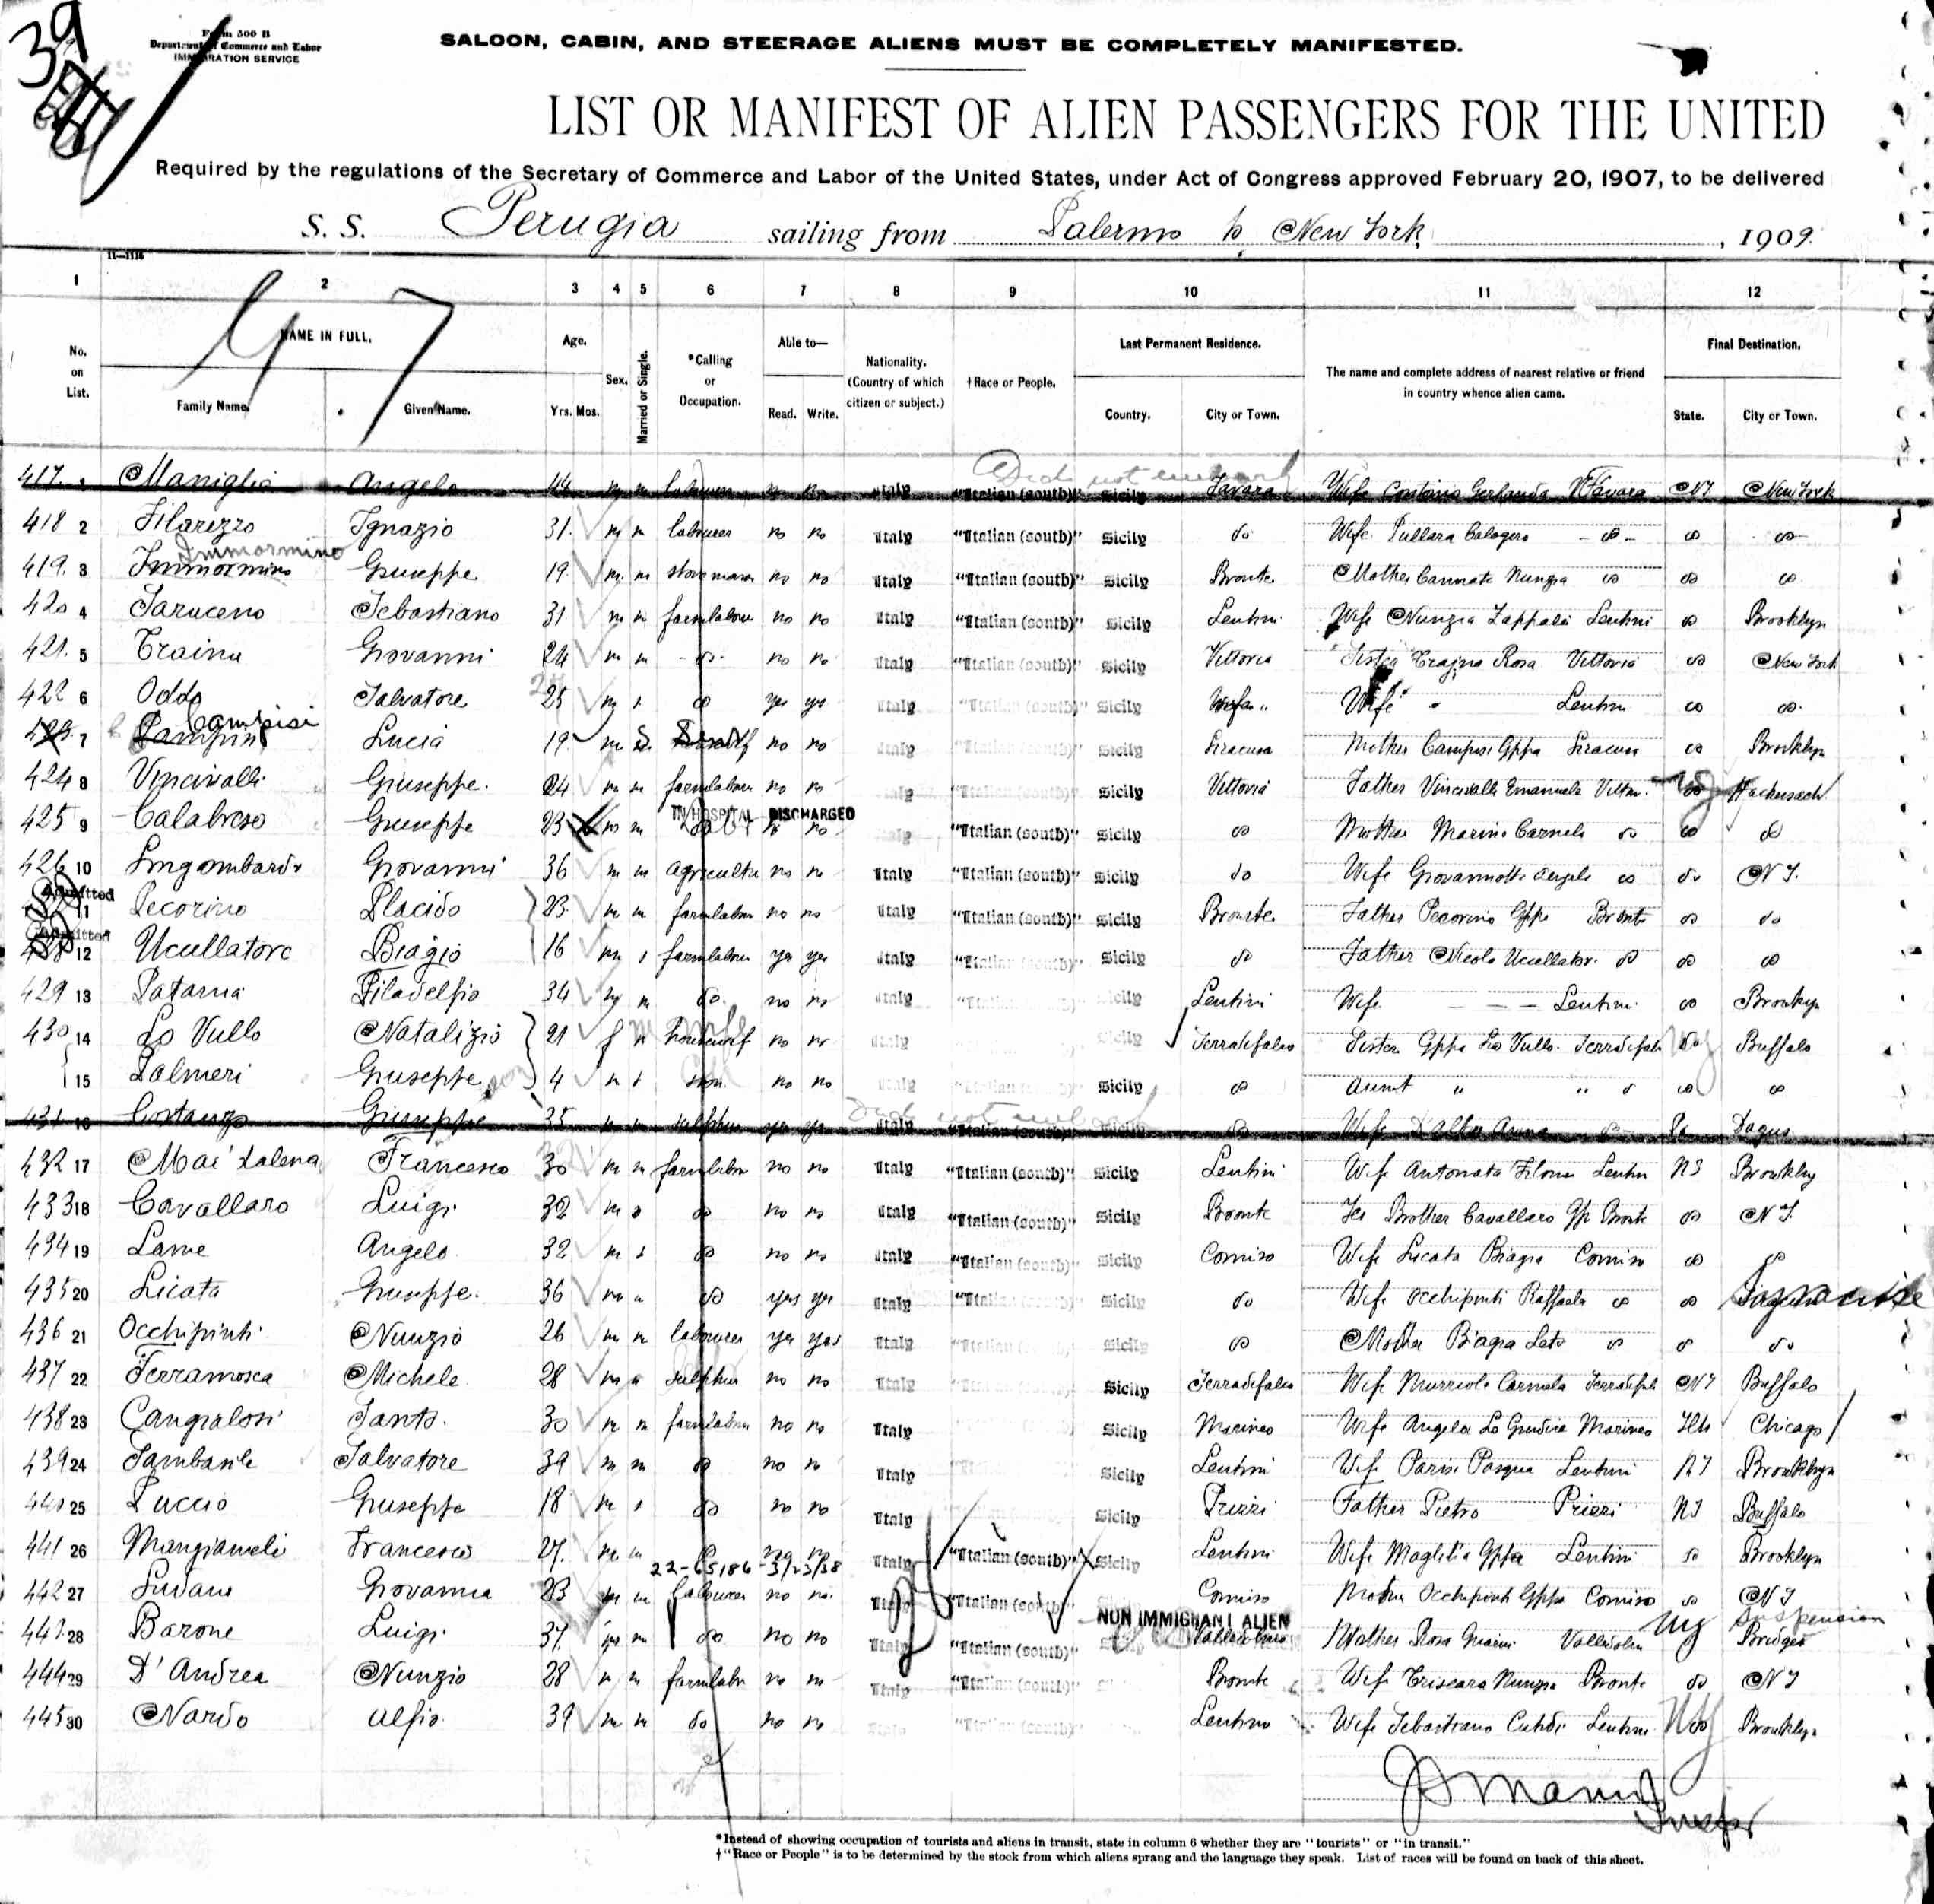 39
Form 500 B
Department of Commerce and Labor
IMMIGRATION SERVICE
SALOON, CABIN, AND STEERAGE ALIENS MUST BE COMPLETELY MANIFESTED.
LIST OR MANIFEST OF ALIEN PASSENGERS FOR THE UNITED
Required by the regulations of the Secretary of Commerce and Labor of the United States, under Act of Congress approved February 20, 1907, to be delivered
S. S. Perugia sailing from Palermo to New York, 1909.
11—1136
1 2 3 4 5 6 7 8 9 10 11 12
No. on List. NAME IN FULL. Family Name. Given Name. Age. Yrs. Mos. Sex. Married or Single. *Calling or Occupation. Able to— Read. Write. Nationality. (Country of which citizen or subject.) †Race or People. Last Permanent Residence. Country. City or Town. The name and complete address of nearest relative or friend in country whence alien came. Final Destination. State. City or Town.
Did not embark
417. 1 Maniglia Angelo 44 m m labourer no no Italy "Italian (south)" Sicily Favara Wife Gerlanda Favara NY New York
418 2 Ignazio 31 m m labourer no no Italy "Italian (south)" Sicily do Wife Pullara Calogero do do do
Immormino
419. 3 Immormino Giuseppe 19 m m no no Italy "Italian (south)" Sicily Bronte Mother Nunzia do do do
420 4 Saraceno Sebastiano 31 m m farmlabourer no no Italy "Italian (south)" Sicily Lentini Wife Nunzia Zappala Lentini do Brooklyn
421. 5 Traina Giovanni 24 m m do no no Italy "Italian (south)" Sicily Vittoria Sister Traina Rosa Vittoria do New York
422 6 Oddo Salvatore 25 m s do yes yes Italy "Italian (south)" Sicily Wife " Lentini do do
Campisi
423 7 Lucia 19 no no Italy "Italian (south)" Sicily Siracusa Mother Campisi Gppa Siracusa do Brooklyn
424 8 Vincivalli Giuseppe. 24 m m farmlabourer no no Italy "Italian (south)" Sicily Vittoria Father Vincivalli Emanuele Vittoria do Hackensack
IN HOSPITAL DISCHARGED
425 9 Calabrese Giuseppe 23 m m do no no Italy "Italian (south)" Sicily do Mother Marino Carmela do do do
426 10 Lingombardo Giovanni 36 m m agriculture no no Italy "Italian (south)" Sicily do Wife Giovannotti Angela do do N Y.
Admitted
11 Pecorino Placido 23 m m farmlabour no no Italy "Italian (south)" Sicily Bronte Father Pecorino Gppe Bronte do do
Admitted
428 12 Ucullatore Biagio 16 m s farmlabour yes yes Italy "Italian (south)" Sicily do Father Nicolo Ucullatore do do do
429 13 Patania Filadelfio 34 m m do no no Italy "Italian (south)" Sicily Lentini Wife — — Lentini do Brooklyn
430 14 Lo Vullo Natalizio 21 f m housewif no no Italy Sicily Serradifalco Sister Gppa Lo Vullo Serradifalco do Buffalo
15 Palmeri Giuseppe 4 m s son no no Italy Sicily do Aunt " " do do do
Did not embark
431 16 Costanzo Giuseppe 35 m m sulphur yes yes Italy "Italian (south)" Sicily do Wife D'Alba Anna do Pa Dagus
432 17 Mai dalena Francesco 30 m m farmlabour no no Italy "Italian (south)" Sicily Lentini Wife Antonata Lentini NY Brooklyn
433 18 Cavallaro Luigi 32 m s do no no Italy "Italian (south)" Sicily Bronte Brother Cavallaro Gp Bronte do N Y.
434 19 Lame Angelo 32 m s do no no Italy "Italian (south)" Sicily Comiso Wife Licata Biagia Comiso do do
435 20 Licata Giuseppe. 36 m m do yes yes Italy "Italian (south)" Sicily do Wife Occhipinti Raffaela do do
436 21 Occhipinti Nunzio 26 m m labourer yes yes Italy Sicily do Mother Biagia Leto do do do
437 22 Terramosca Michele 28 m m sulphur no no Italy Sicily Serradifalco Wife Carmela Serradifalco NY Buffalo
438 23 Cangialosi Santo. 30 m m farmlabour no no Italy Sicily Marineo Wife Angela Lo Giudice Marineo Ills Chicago
439 24 Sambasile Salvatore 39 m m do no no Italy Sicily Lentini Wife Parisi Pasqua Lentini NY Brooklyn
440 25 Puccio Giuseppe 18 m s do no no Italy Sicily Prizzi Father Pietro Prizzi NY Buffalo
441 26 Mangiameli Francesco 27. m m do no no Italy "Italian (south)" Sicily Lentini Wife Gppa Lentini do Brooklyn
22-65186-3/23/38
442 27 Giovanni 23 m m labourer no no Italy "Italian (south)" Comiso Mother Occhipinti Gppa Comiso do N Y
NON IMMIGRANT ALIEN
443 28 Barone Luigi 37 m m do no no Italy "Italian (south)" Valledolmo Mother Rosa Valledolmo NY Suspension Bridge
444 29 D'Andrea Nunzio 28 m m farmlabr no no Italy "Italian (south)" Bronte Wife Nunzia Bronte do N Y
445 30 Nardo Alfio. 39 m m do no no Italy "Italian (south)" Lentini Wife Sebastiana Lentini do Brooklyn
Inspr
*Instead of showing occupation of tourists and aliens in transit, state in column 6 whether they are "tourists" or "in transit."
†"Race or People" is to be determined by the stock from which aliens sprang and the language they speak. List of races will be found on back of this sheet.